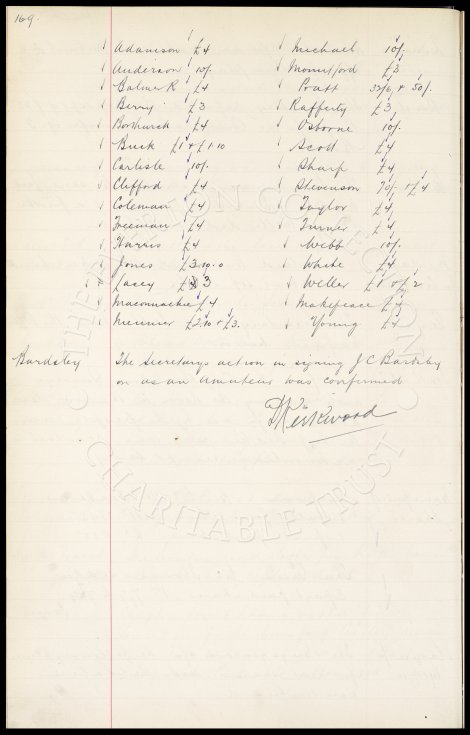 169.
Adamson £4
Anderson 10/-
Balmer R £4
Berry £3
Bowhurck £4
Buck £1 + £1.10
Carlisle 10/-
Clifford £4
Coleman £4
Freeman £4
Harris £4
Jones £3.10.0
Lacey £3
Maconnachie £4
Meunier £2.10 + £3.
Michael 10/-
Mountford £3
Pratt 35/6 + 50/-
Rafferty £3
Osborne 10/-
Scott £4
Sharp £4
Stevenson 70/- + £4
Taylor £4
Turner £4
Webb 10/-
White £4
Weller £1 + £2
Makepeace £4
Young £4
Bardsley The Secretarys action in signing J C Bardsley
on as an amateur was confirmed
D Kirkwood
THE EVERTON COLLECTION
CHARITABLE TRUST